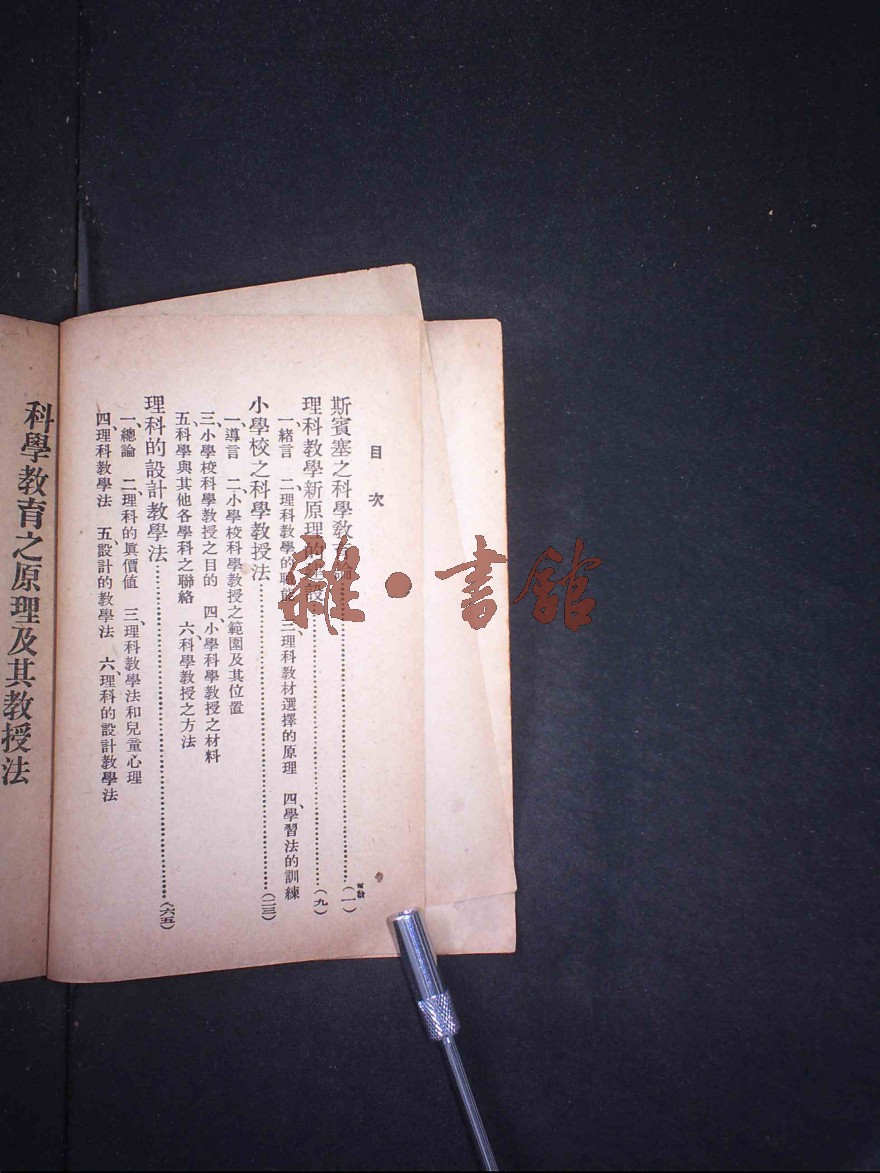 目次
頁數
斯賓塞之科學教育論……(一)
理科教學新原理的建設……(九)
一、緒言 二、理科教學的職能 三、理科教材選擇的原理 四、學習法的訓練
小學校之科學教授法……(二三)
一、導言 二、小學校科學教授之範圍及其位置
三、小學校科學教授之目的 四、小學科學教授之材料
五、科學與其他各學科之聯絡 六、科學教授之方法
理科的設計教學法……(六五)
一、總論 二、理科的眞價值 三、理科教學法和兒童心理
四、理科教學法 五、設計的教學法 六、理科的設計教學法
科學教育之原理及其教授法
雜·書館